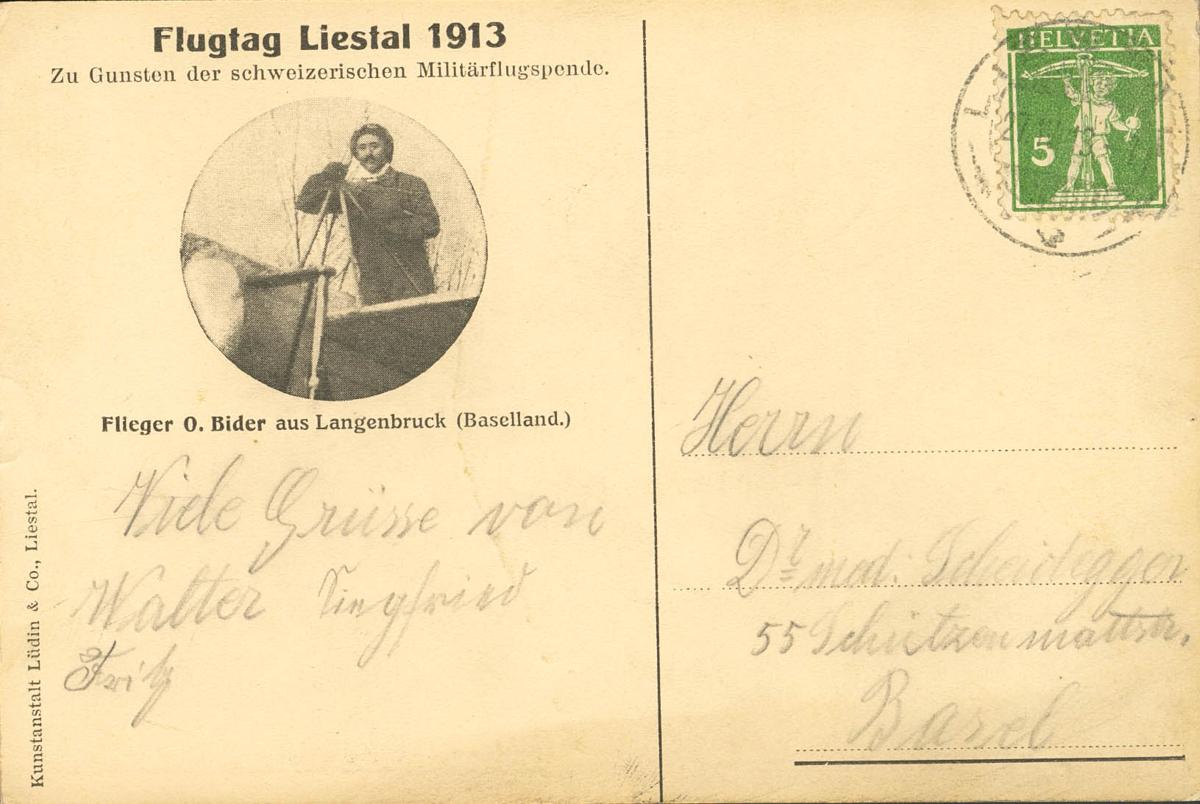 Flugtag Liestal 1913
Zu Gunsten der schweizerischen Militärflugspende.
Flieger O. Bider aus Langenbruck (Baselland.)
Viele Grüsse von
Walter Siegfried
Fritz
Kunstanstalt Lüdin & Co., Liestal.
HELVETIA
5
Herrn
Dr med. Scheidegger
55 Schützenmattstr.
Basel